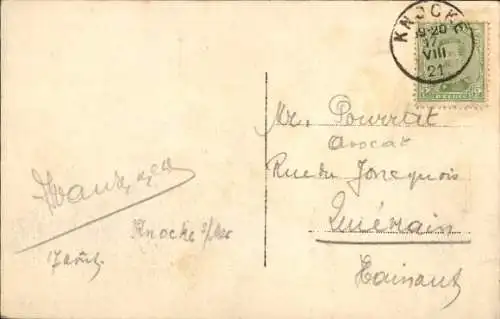 KNOCKE
19-20
17
VIII
21
Mr. Pourtat
avocat
Rue du Joncquois
Quévrain
Hainaut
Knocke s/Mer
17 août